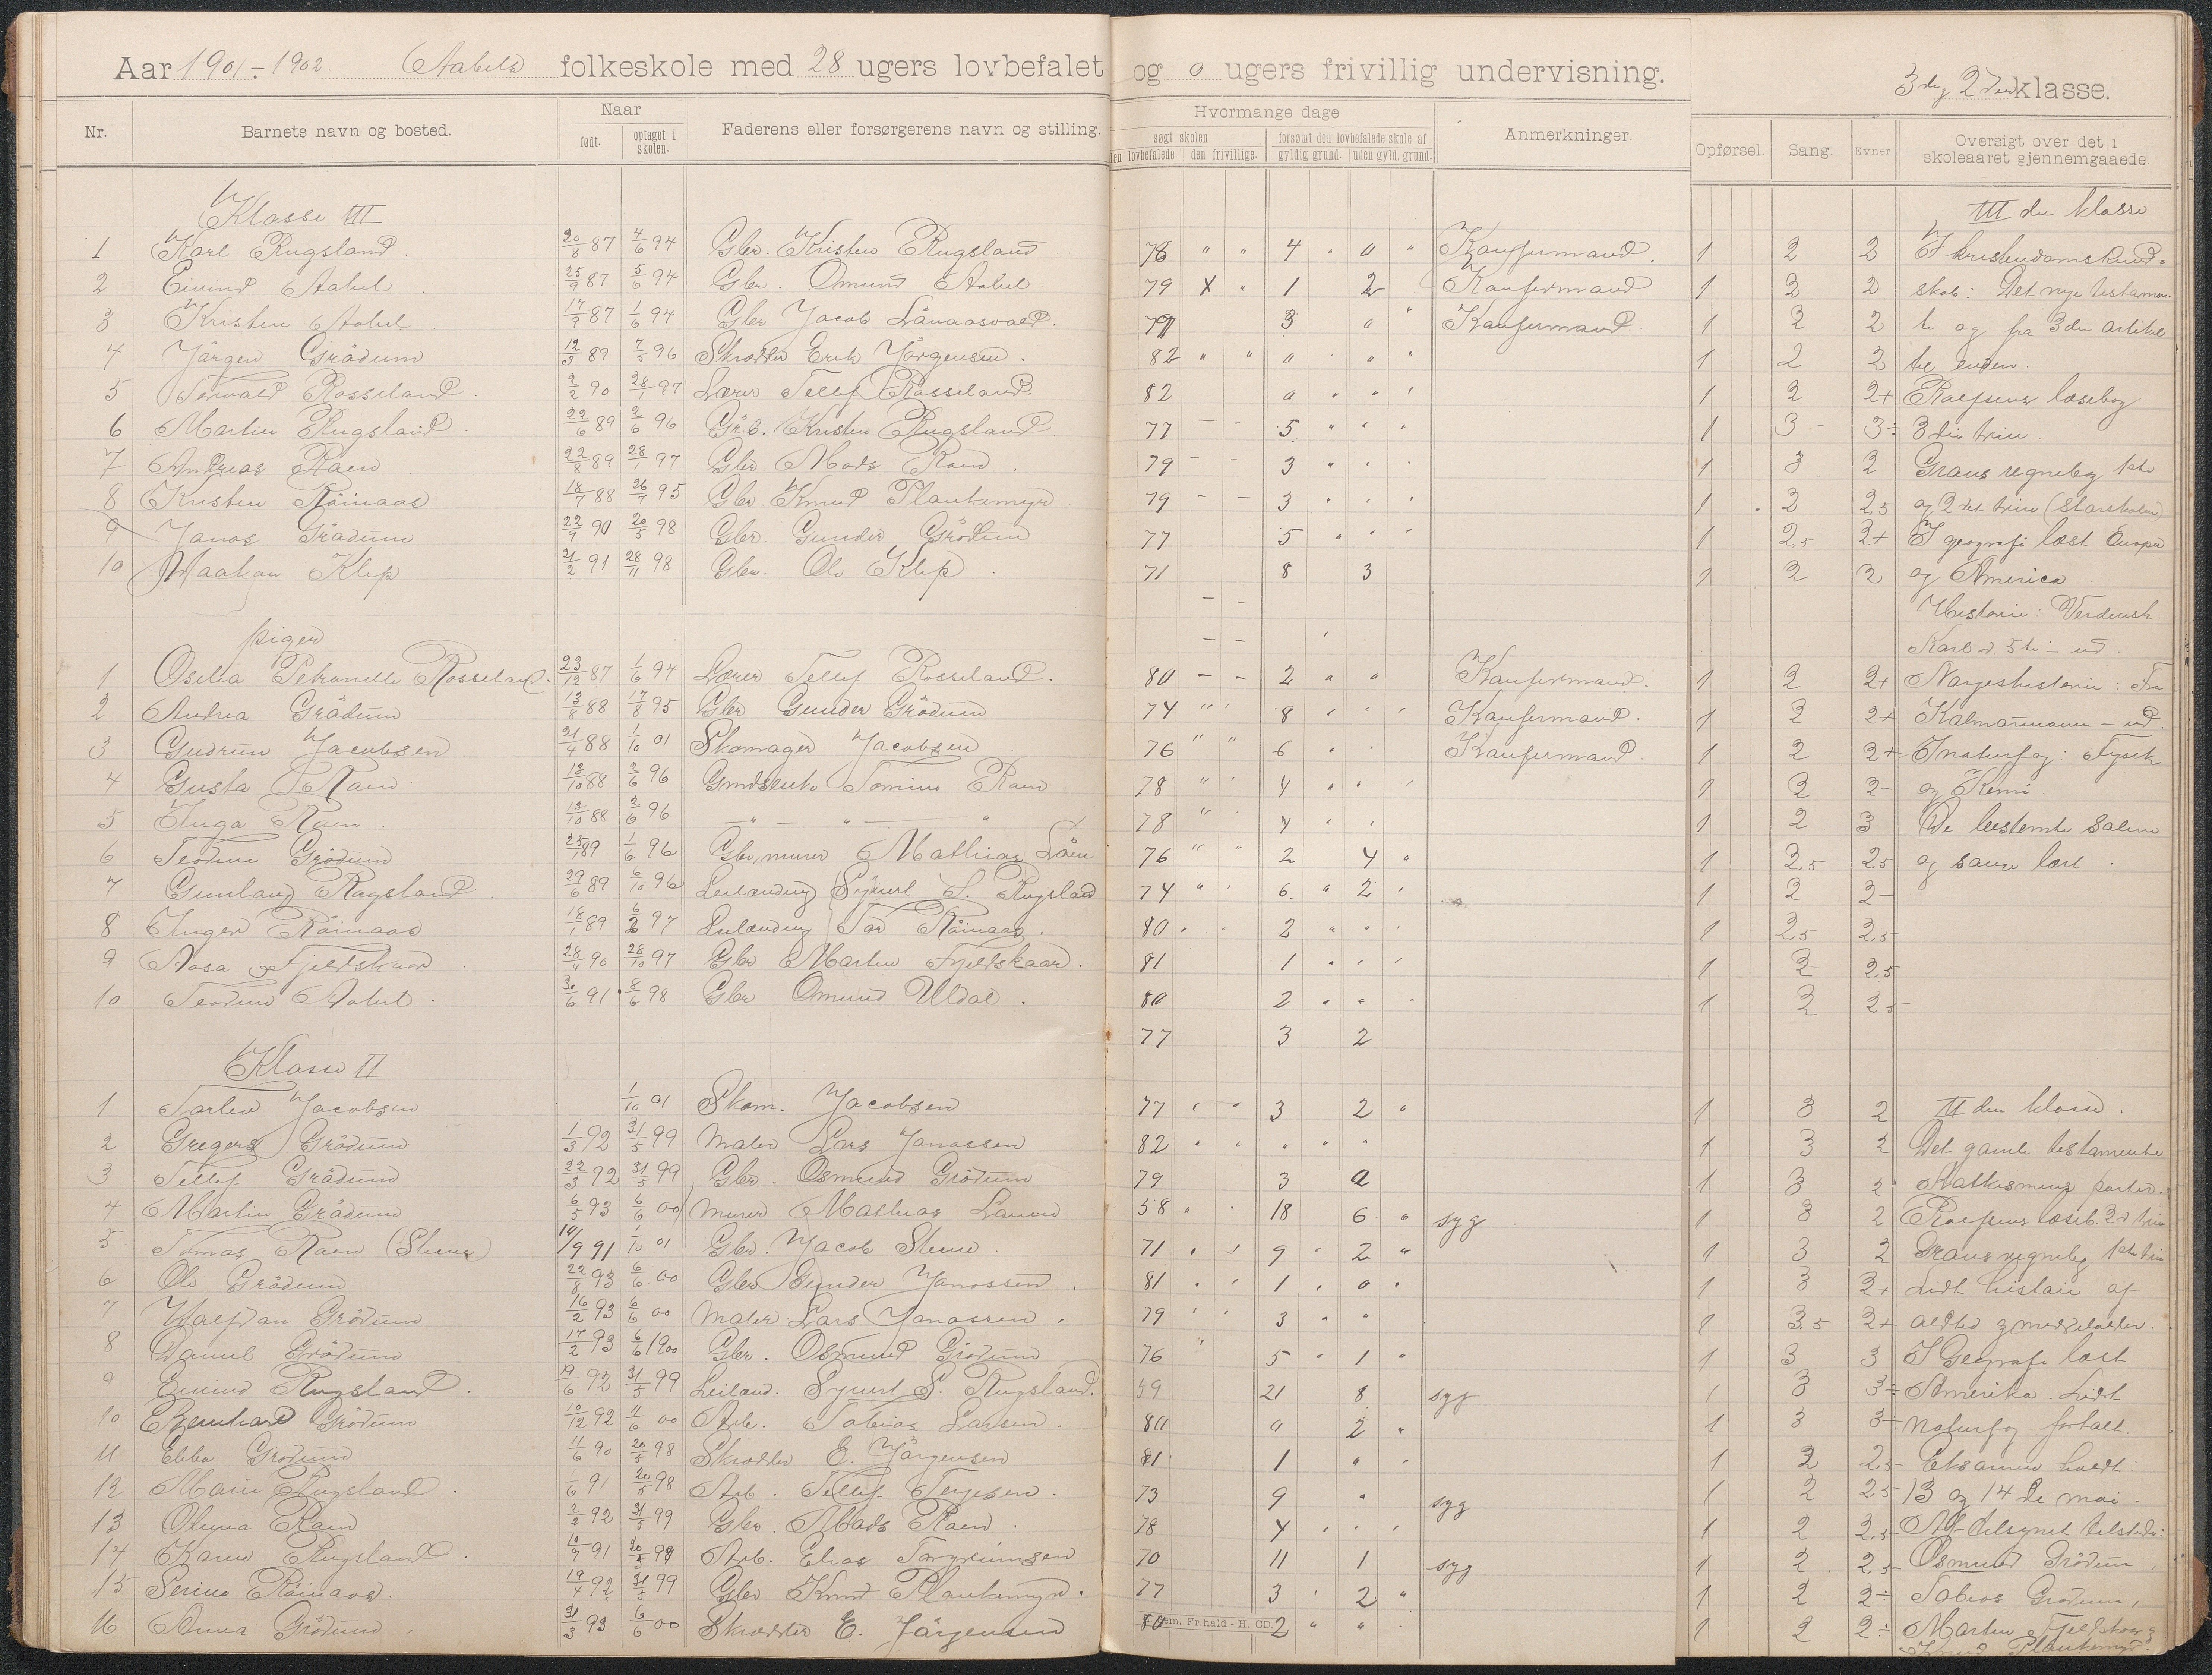 Aar 1901-1902. Aabels folkeskole med 28 ugers lovbefalet og 0 ugers frivillig undervisning. 3die og 2den klasse.
Nr. Barnets navn og bosted. Naar født. optaget i skolen. Faderens eller forsørgerens navn og stilling. Hvormange dage søgt skolen den lovbefalede den frivillige. forsømt den lovbefalede skole af gyldig grund. uden gyld. grund. Anmerkninger. Opførsel. Sang. Evner Oversigt over det i skoleaaret gjennemgaaede.
Klasse III III die klasse
1 Karl Rugsland. 20/8 87 4/6 94 Gbr. Kristen Rugsland 78 " " 4 " " " Konfirmand. 1 2 2 I kristendomskund-
2 Eivind Aabel 25/9 87 5/6 94 Gbr. Omund Aabel 79 X " 1 2 Konfirmand 1 3 2 skab: Det nye testamen-
3 Kristen Aabel. 17/9 87 1/6 94 Gbr Jacob Lånaasvald. 79 3 " " Konfirmand. 1 3 2 te og fra 3die artikel
4 Jørgen Grødum 12/3 89 7/5 96 Skrædder Erik Jørgensen. 82 " " " " " " 1 2 2 til enden.
5 Torvald Rosseland. 2/2 90 28/1 97 Lærer Tellef Rosseland. 82 " " " " 1 2 2+ Rolfsens læsebog
6 Martin Rugsland. 22/6 89 2/6 96 Gbr. Kristen Rugsland 77 - - 5 " " " 1 3 3÷ 3die trin.
7 Andreas Raen 22/8 89 28/1 97 Gbr. Mads Raen. 79 - - 3 " " " 1 3 2 Grans regnebog 1ste
8 Kristen Råinaas 18/7 88 26/7 95 Gbr. Knud Plankemyr 79 - - 3 " " " 1 2 2,5 og 2det trin (Storskolen)
9 Janos Grødum 22/9 90 20/5 98 Gbr. Gunder Grødum 77 5 " " " 1 2,5 2+ I geografi læst Europa
10 Haakon Klep 21/2 91 28/11 98 Gbr. Ole Klep. 71 8 3 1 2 2 og America
Historie: Verdensh.
piger Karl d. 5te - ud.
1 Oselia Petronelle Rosseland. 23/12 87 1/6 94 Lærer Tellef Rosseland. 80 - - 2 " " Konfirmand. 1 2 2+ Norgeshistorie: Fra
2 Andrea Grødum 13/8 88 17/8 95 Gbr Gunder Grødum 74 " " 8 " " " Konfirmand. 1 2 2+ Kalmarunionen - ud.
3 Gudrun Jacobsen 21/4 88 1/10 01 Skomager Jacobsen 76 " " 6 " " Konfirmand. 1 2 2+ I naturfag: Fysik
4 Gusta Raen 13/10 88 2/6 96 Gmdsenke Tomine Raen 78 " " 4 " " " 1 2 2- og Kemi.
5 Inga Raen. 13/10 88 2/6 96 — " — " — " 78 " " 4 " " 1 2 3 De bestemte salmer
6 Teodine Grødum 25/1 89 1/6 96 Gbr, murer Mathias Låne 76 " " 2 4 " 1 2,5 2,5 og sange lært.
7 Gunlaug Rugsland. 29/6 89 6/10 96 Leilænding Syvert S. Rugsland 74 " " 6 " 2 " 1 2 2-
8 Inger Råinaas 18/1 89 6/2 97 Leilænding Tor Råinaas. 80 " " 2 " " " 1 2,5 2,5
9 Aasa Fjeldskaar 28/4 90 28/10 97 Gbr Marten Fjeldskaar. 81 1 " " " 1 2 2,5
10 Teodine Aabel. 30/6 91 8/6 98 Gbr Omund Uldal. 80 2 " " " 1 2 2,5
77 3 2
Klasse II
1 Torlev Jacobsen 1/10 01 Skom. Jacobsen 77 " " 3 2 " 1 3 2 II den klasse.
2 Gregers Grødum 1/3 92 31/5 99 Maler Lars Janossen 82 " " " " " 1 3 2 Det gamle testamente
3 Tellef Grødum 22/3 92 31/5 99 Gbr. Osmund Grødum 79 3 " 1 3 2 Katkismens parter.
4 Martin Grødum 6/5 93 6/6 00 Murer Mathias Laune 58 " " 18 6 " syg 1 3 2 Rolfsens læseb. 2d trin
5 Tomas Raen (Stene) 10/9 91 1/10 01 Gbr. Jacob Stene. 71 " " 9 " 2 " 1 3 2 Grans regnebog 1ste trin
6 Ole Grødum 22/8 93 6/6 00 Gbr Gunder Janossen. 81 " " 1 " 0 " 1 3 2+ Lidt historie af
7 Halfdan Grødum 16/2 93 6/6 00 Maler Lars Janossen. 79 " " 3 " " 1 3.5 2+ oldtid og middelalder.
8 Daniel Grødum 17/2 93 6/6 1900 Gbr. Osmund Grødum 76 " 5 " 1 " 1 3 3 I Geografi læst
9 Eivind Rugsland. 19/6 92 31/5 99 Leilænd. Syvert S. Rugsland. 59 21 8 syg 1 3 3÷ Amerika. Lidt
10 Bernhard Grødum 10/12 92 11/6 00 Arb. Tobias Larsen. 80 " 2 " 1 3 3÷ naturfag fortalt.
11 Ebba Grødum 11/6 90 20/5 98 Skrædder E. Jørgensen 81 1 " " 1 2 2,5 Eksamen holdt:
12 Marie Rugsland. 1/6 91 20/5 98 Arb. Tellef Terjesen. 73 9 " syg 1 2 2,5 13 og 14de mai.
13 Oluva Raen 2/2 92 31/5 99 Gbr. Mads Raen. 78 4 " " " 1 2 2,5 Af tilsynet tilstede:
14 Karen Rugsland. 10/7 91 20/5 99 Arb. Elias Torgrimsen 70 11 1 syg 1 2 2,5 Osmund Grødum,
15 Serine Råinaas. 19/4 92 31/5 99 Gbr Knud Plankemyr. 77 3 " 2 " 1 2 2÷ Tobias Grødum,
16 Anna Grødum. 31/3 93 6/6 00 Skrædder E. Jørgensen 80 2 " " 1 2 2÷ Marten Fjeldskaar,
Knud Plankemyr.